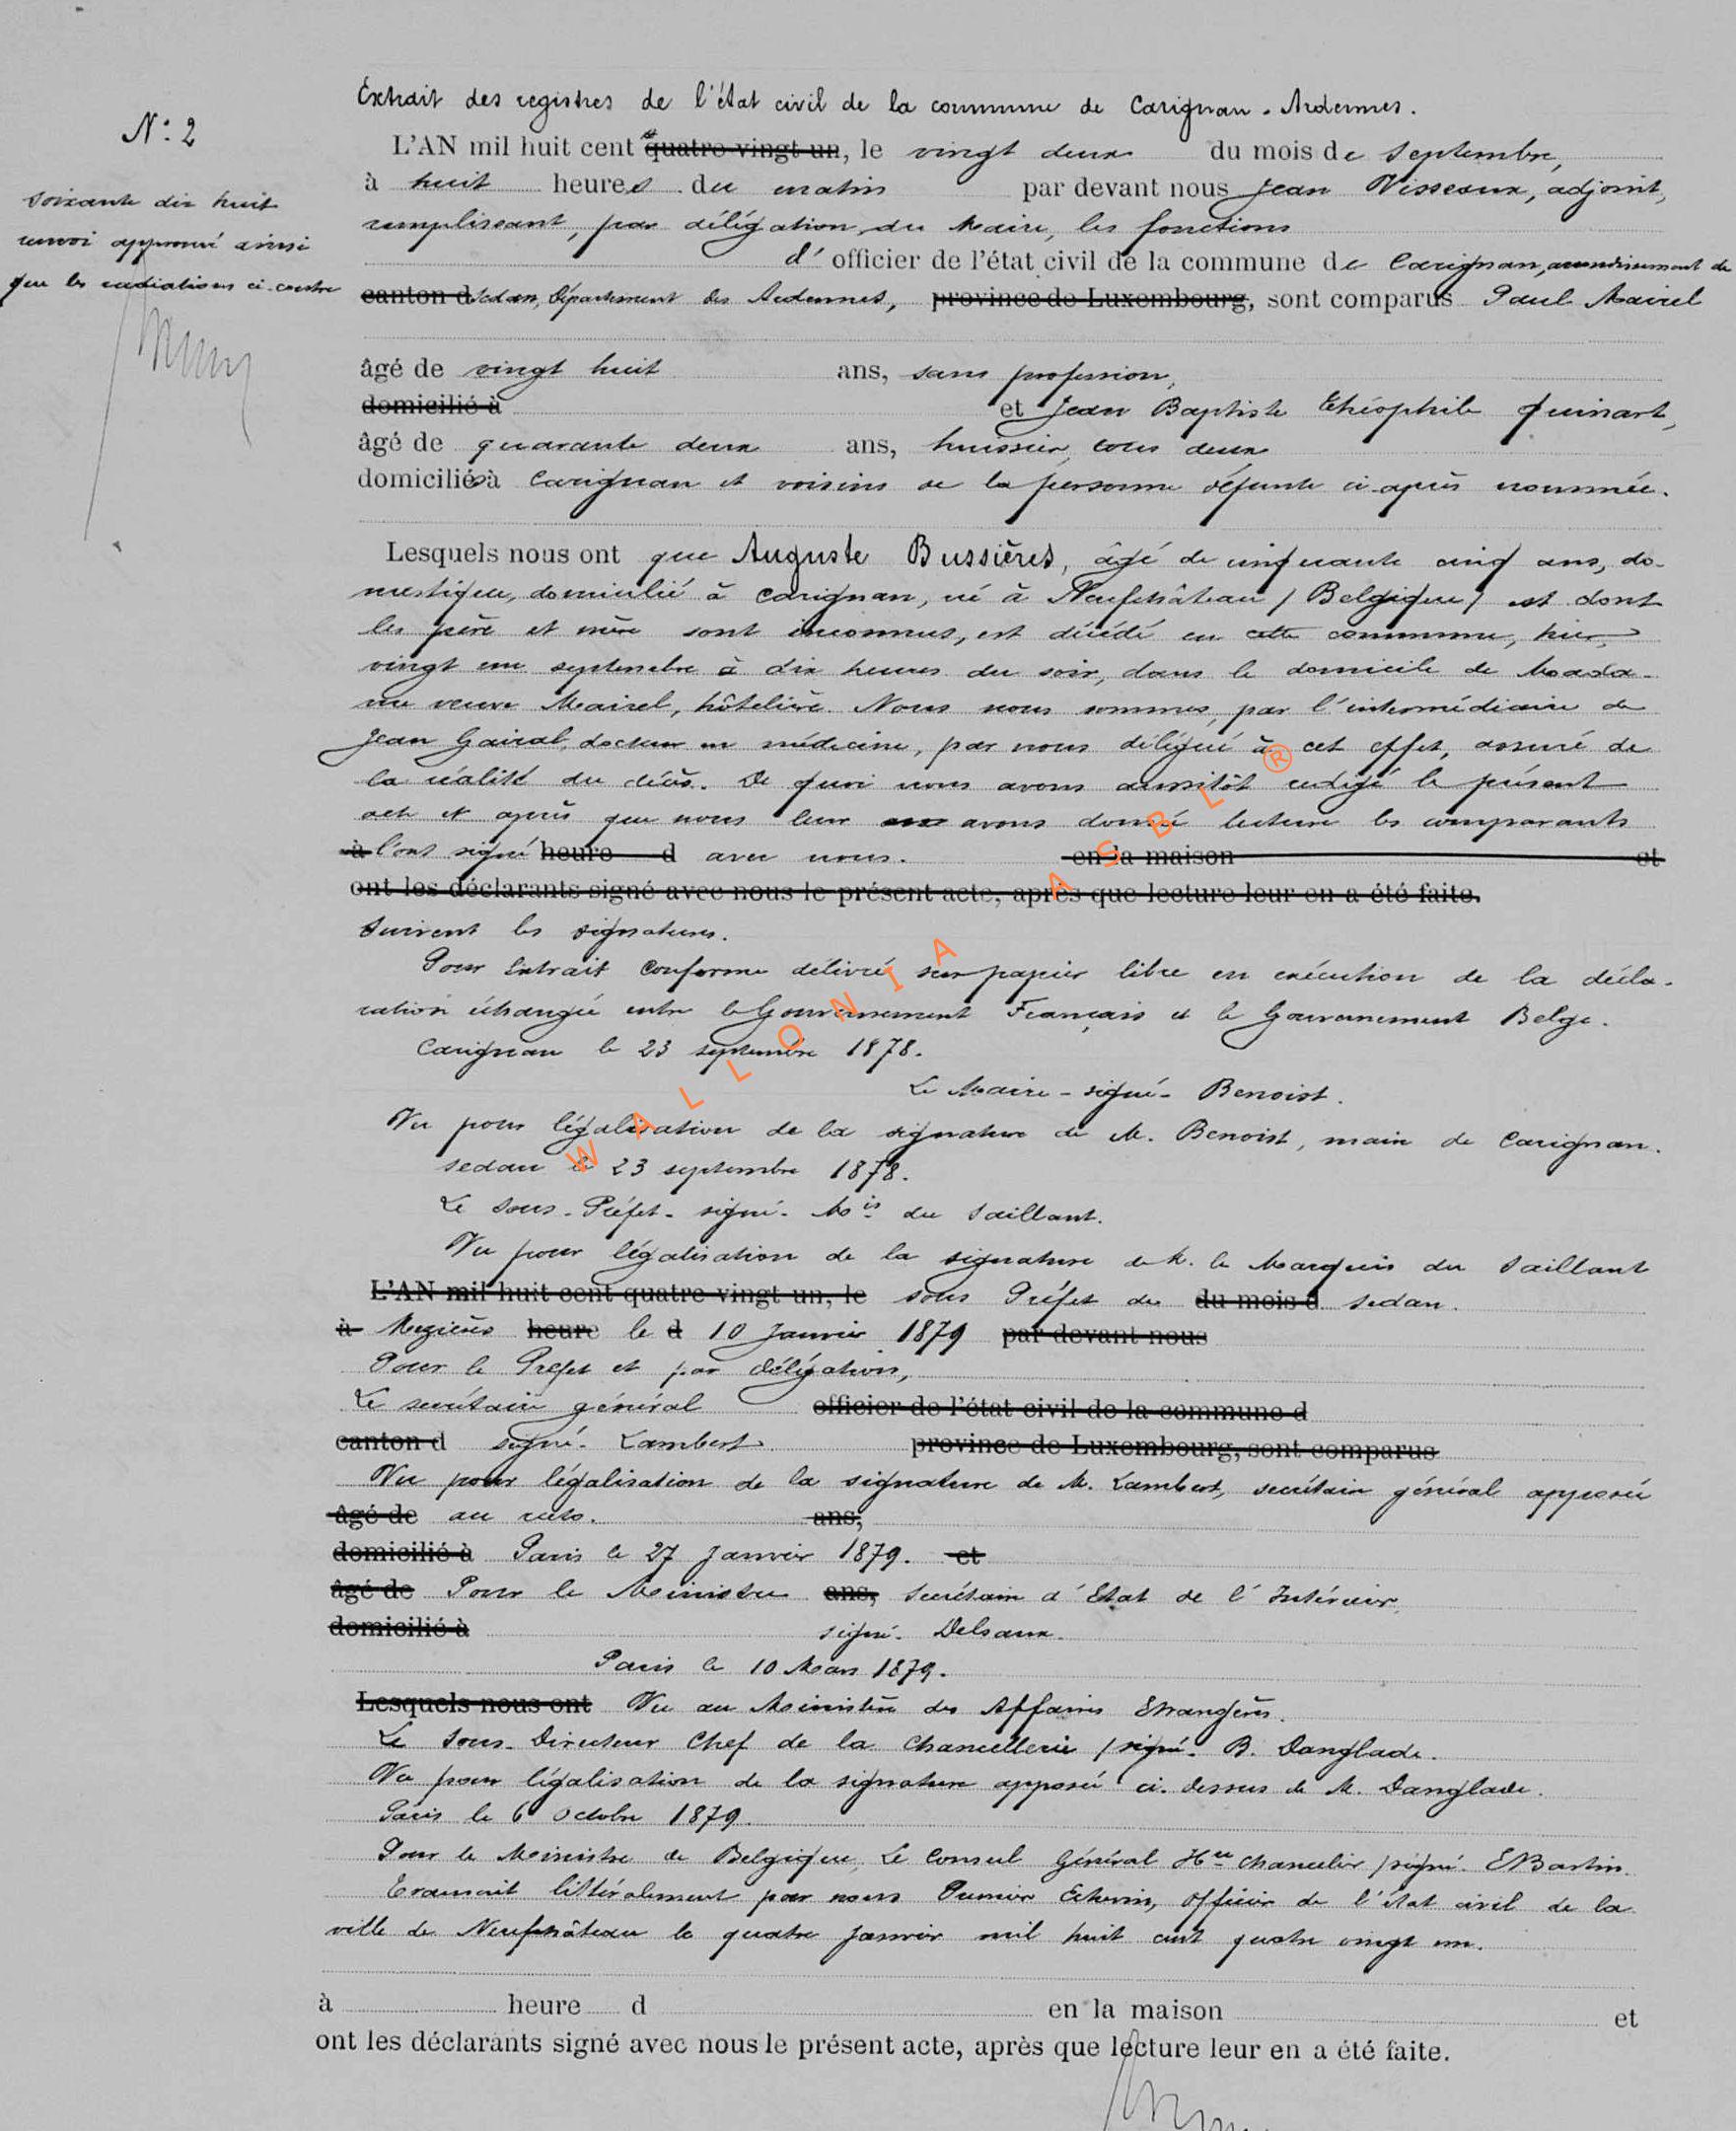 Extrait des registres de l'état civil de la commune de Carignan - Ardennes.
N° 2
L'AN mil huit cent quatre vingt un, le vingt deux du mois de Septembre,
à huit heures du matin par devant nous Jean Visseaux, adjoint,
soixante dix huit
renvoi approuvé ainsi
que les radiations ci-contre
remplissant, par délégation du Maire, les fonctions
d'officier de l'état civil de la commune de Carignan, arrondissement de
canton d Sedan, Département des Ardennes, province de Luxembourg, sont comparus Paul Mairel
âgé de vingt huit ans, sans profession,
domicilié à et Jean Baptiste Théophile Guinart,
âgé de quarante deux ans, huissier, tous deux
domiciliés à Carignan et voisins de la personne défunte ci-après nommée.
Lesquels nous ont que Auguste Bussières, âgé de cinquante cinq ans, do-
mestique, domicilié à Carignan, né à Neufchâteau (Belgique) et dont
les père et mère sont inconnus, est décédé en cette commune, hier,
vingt un septembre à dix heures du soir, dans le domicile de Mada-
me veuve Mairel, hôtelière. Nous nous sommes, par l'intermédiaire de
Jean Gairal, docteur en médecine, par nous délégué à cet effet, assuré de
la réalité du décès. De quoi nous avons aussitôt rédigé le présent
acte et après que nous leur en avons donné lecture les comparants
à l'ont signé heure d avec nous. en la maison et
ont les déclarants signé avec nous le présent acte, après que lecture leur en a été faite.
Suivent les signatures.
Pour Extrait conforme délivré sur papier libre en exécution de la décla-
ration échangée entre le Gouvernement Français et le Gouvernement Belge.
Carignan le 23 septembre 1878.
Le Maire - signé - Benoist.
Vu pour légalisation de la signature de M. Benoist, maire de Carignan.
Sedan le 23 septembre 1878.
Le Sous-Préfet - signé - Mis du Saillant.
Vu pour légalisation de la signature de M. le Marquis du Saillant
L'AN mil huit cent quatre vingt un, le sous Préfet de du mois d Sedan.
à Mezières heure le d 10 Janvier 1879 par devant nous
Pour le Préfet et par délégation,
Le secrétaire général officier de l'état civil de la commune d
canton d signé - Lambert province de Luxembourg, sont comparus
Vu pour légalisation de la signature de M. Lambert, secrétaire général apposée
âgé de au recto. ans,
domicilié à Paris le 27 Janvier 1879. et
âgé de Pour le Ministre ans, Secrétaire d'Etat de l'Intérieur,
domicilié à signé - Delsaux.
Paris le 10 Mars 1879.
Lesquels nous ont Vu au Ministère des Affaires Etrangères.
Le Sous-Directeur Chef de la Chancellerie / signé - B. Danglade.
Vu pour légalisation de la signature apposée ci-dessus de M. Danglade.
Paris le 6 Octobre 1879.
Pour le Ministre de Belgique, Le Consul Général Hre Chancelier / signé - E Bastin.
Transcrit littéralement par nous Premier Echevin, officier de l'état civil de la
ville de Neufchâteau le quatre Janvier mil huit cent quatre vingt un.
à heure d en la maison et
ont les déclarants signé avec nous le présent acte, après que lecture leur en a été faite.
WALLONIA ASBL ®